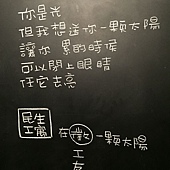 你是光
但我想送你一顆太陽
讓你 累的時候
可以閉上眼睛
任它去亮
民生
工寓
在徵一顆太陽
工友